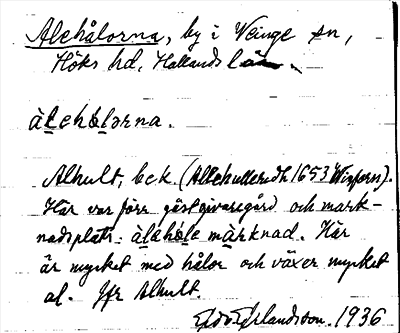 Alehålorna, by i Veinge sn,
Höks hd, Hallands län.
àlehòlorna.
Alhult, bek (Allehulleredh 1653 ).
Här var förr gästgivaregård och mark-
nadsplats: àlahòle màrknad. Här
är mycket med hålor och växer mycket
al. Jfr Alhult.
Edv. Erlandsson. 1936